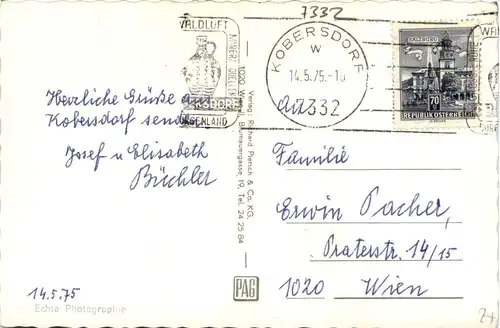 7332
WALDLUFT
MINERALQUELLEN
BURGENLAND
KOBERSDORF
W
14.5.75.-10
7332
SALZBURG
70
REPUBLIK ÖSTERREICH
Herzliche Grüße a.
Kobersdorf senden
Josef u Elisabeth
Büchler
14.5.75
Echte Photographie
Verlag: Richard Pietsch & Co. KG.
1020 Wien, Blumauergasse 19, Tel. 24 25 84
PAG
Familie
Erwin Pacher,
Praterstr. 14/15
1020 Wien